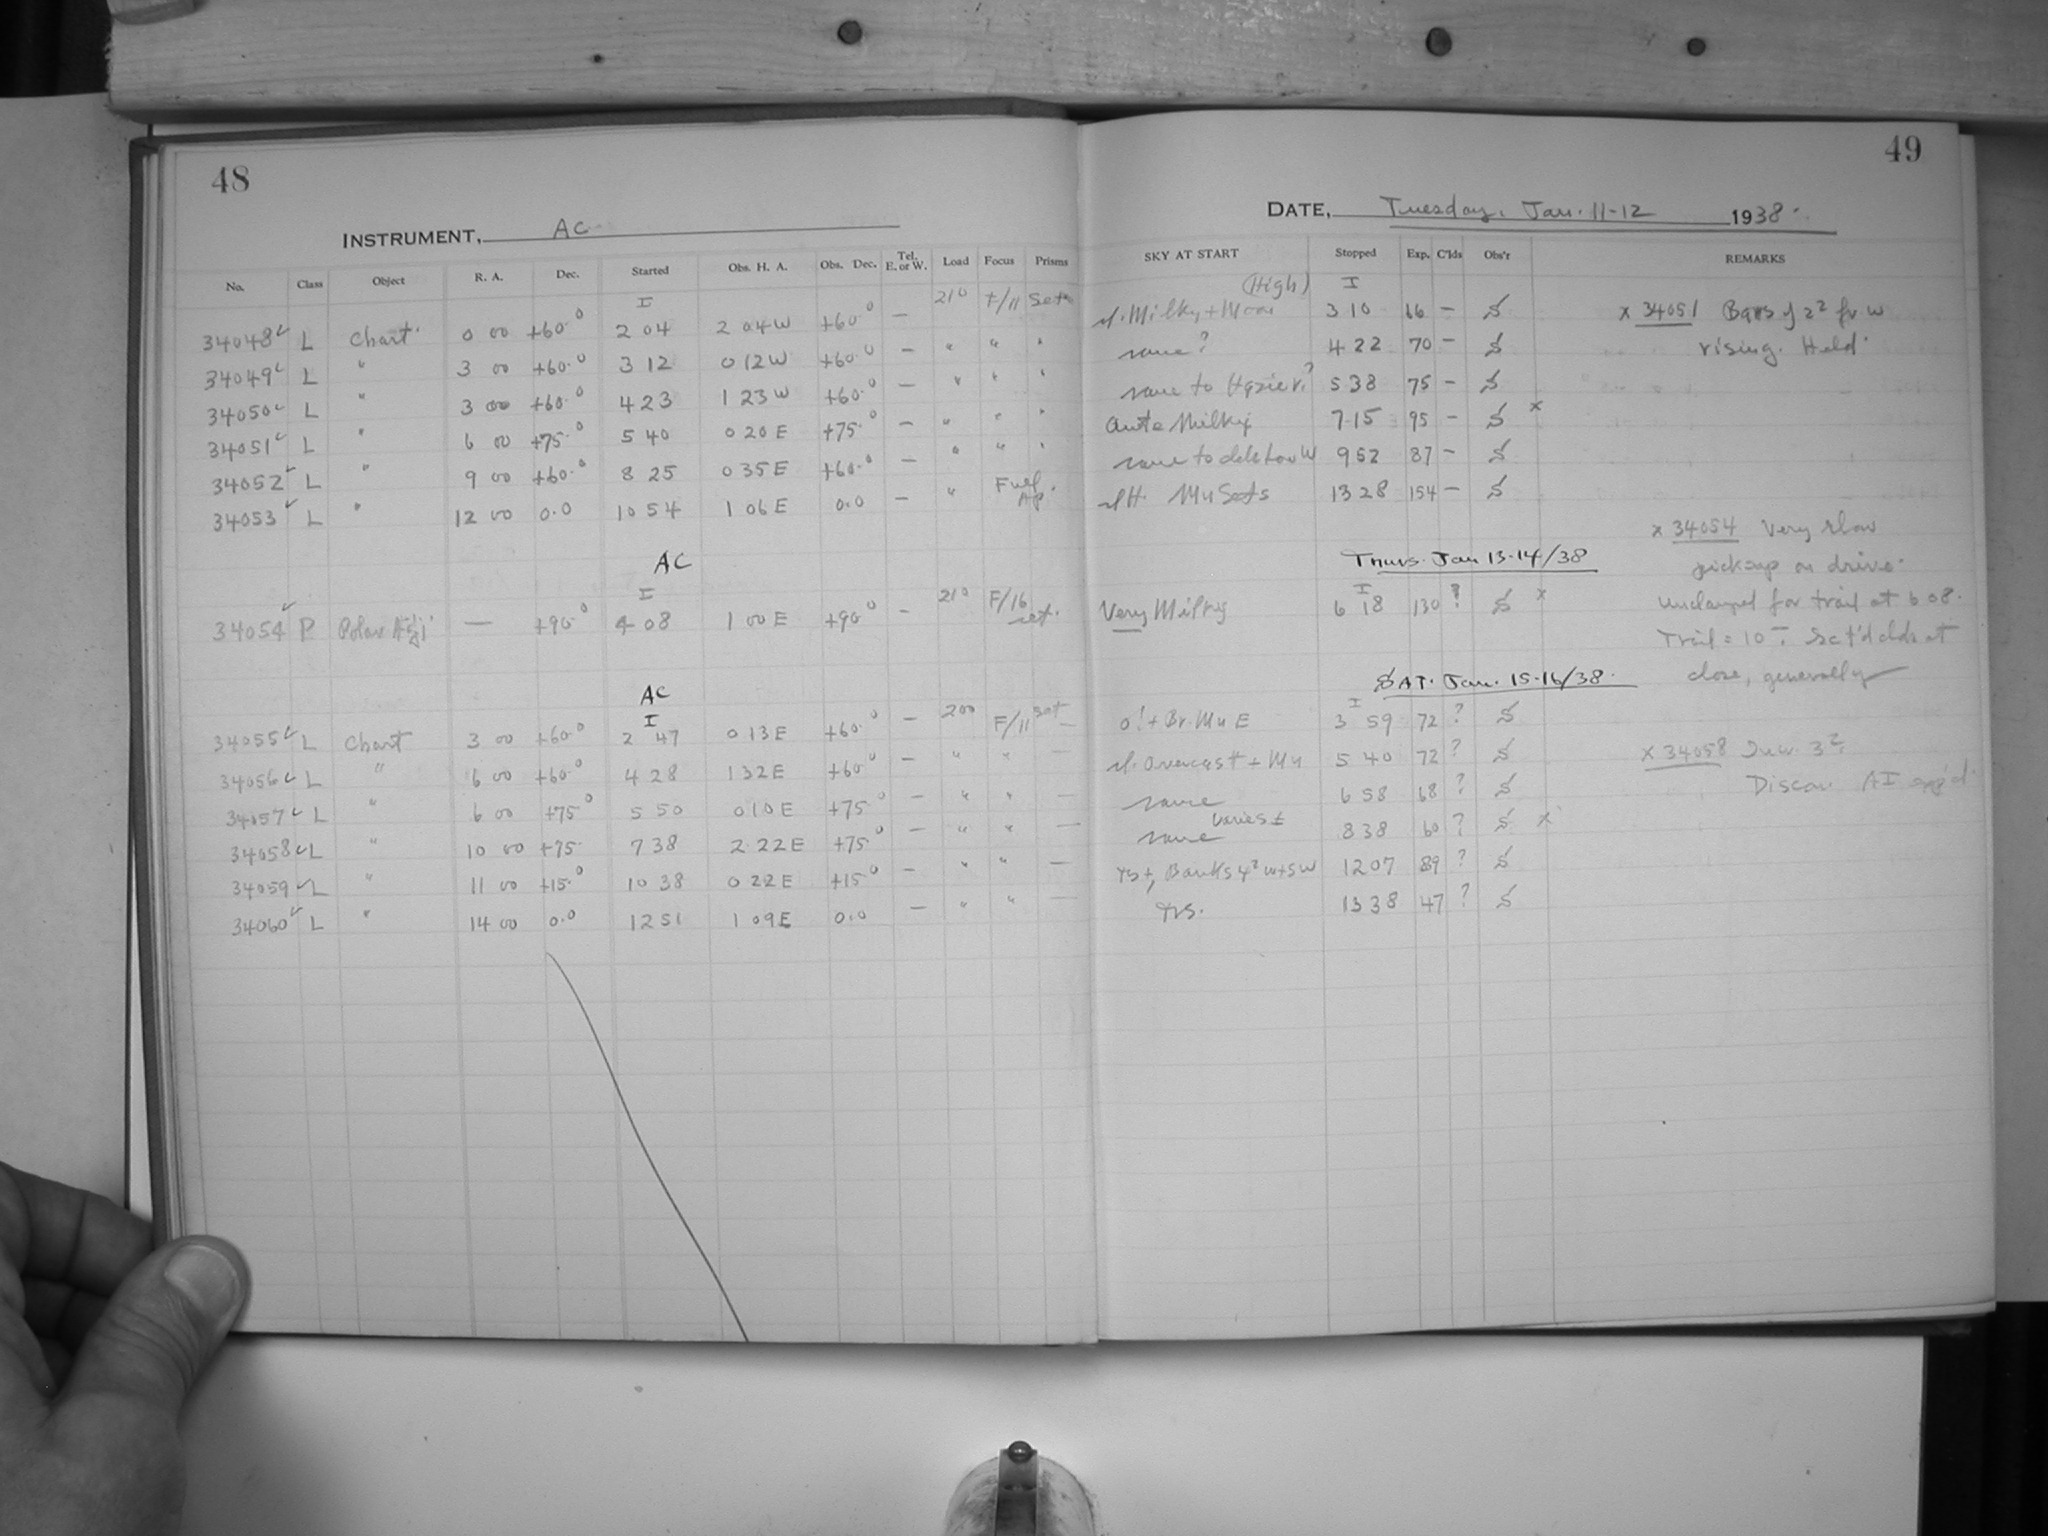 48
INSTRUMENT, AC
No. Class Object R. A. Dec. Started Obs. H. A. Obs. Dec. Tel. E. or W. Load Focus Prisms
I 210 F/11 Set
34048 ✓ L Chart. 0 00 +60.0 2 04 2 04 W +60.0 —
34049 ✓ L " 3 00 +60.0 3 12 0 12 W +60.0 — " " "
34050 ✓ L " 3 00 +60.0 4 23 1 23 W +60.0 — " " "
34051 ✓ L " 6 00 +75.0 5 40 0 20 E +75.0 — " " "
34052 ✓ L " 9 00 +60.0 8 25 0 35 E +60.0 — " " "
34053 ✓ L " 12 00 0.0 10 54 1 06 E 0.0 — " Full Ap.
AC
I
34054 ✓ P Polar Adj — +90.0 4 08 1 00 E +90.0 — 210 F/16 set.
AC
I
34055 ✓ L Chart 3 00 +60.0 2 47 0 13 E +60.0 — 200 F/11 set —
34056 ✓ L " 6 00 +60.0 4 28 1 32 E +60.0 — " " —
34057 ✓ L " 6 00 +75.0 5 50 0 10 E +75.0 — " " —
34058 ✓ L " 10 00 +75. 7 38 2 22 E +75.0 — " " —
34059 ✓ L " 11 00 +15.0 10 38 0 22 E +15.0 — " " —
34060 ✓ L " 14 00 0.0 12 51 1 09 E 0.0 — " " —
49
DATE, Tuesday, Jan. 11-12 1938.
SKY AT START Stopped Exp. C'lds Obs'r REMARKS
(High) I
Milky + Moon 3 10 66 — S
same? 4 22 70 — S
same to Hazier? 5 38 75 — S
Quite Milky 7 15 95 — S x
same to W 9 52 87 — S
Mn Sets 13 28 154 — S
x 34051 Bars of z² fr W
rising. Held.
Thurs. Jan 13-14/38
I
Very Milky 6 18 130 ? S x
x 34054 Very slow
pickup on drive.
unclamped for trail at 6 08.
Trail = 10 Sc't'd clds at
close, generally
SAT. Jan. 15-16/38.
I
+ Br. Mn E 3 59 72 ? S
Overcast + Mn 5 40 72 ? S
same 6 58 68 ? S
same varies ± 8 38 60 ? S x
Banks z² W+SW 12 07 89 ? S
13 38 47 ? S
x 34058
Discon.